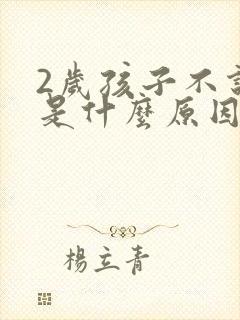 2歲孩子不
是什麼原因
楊立青